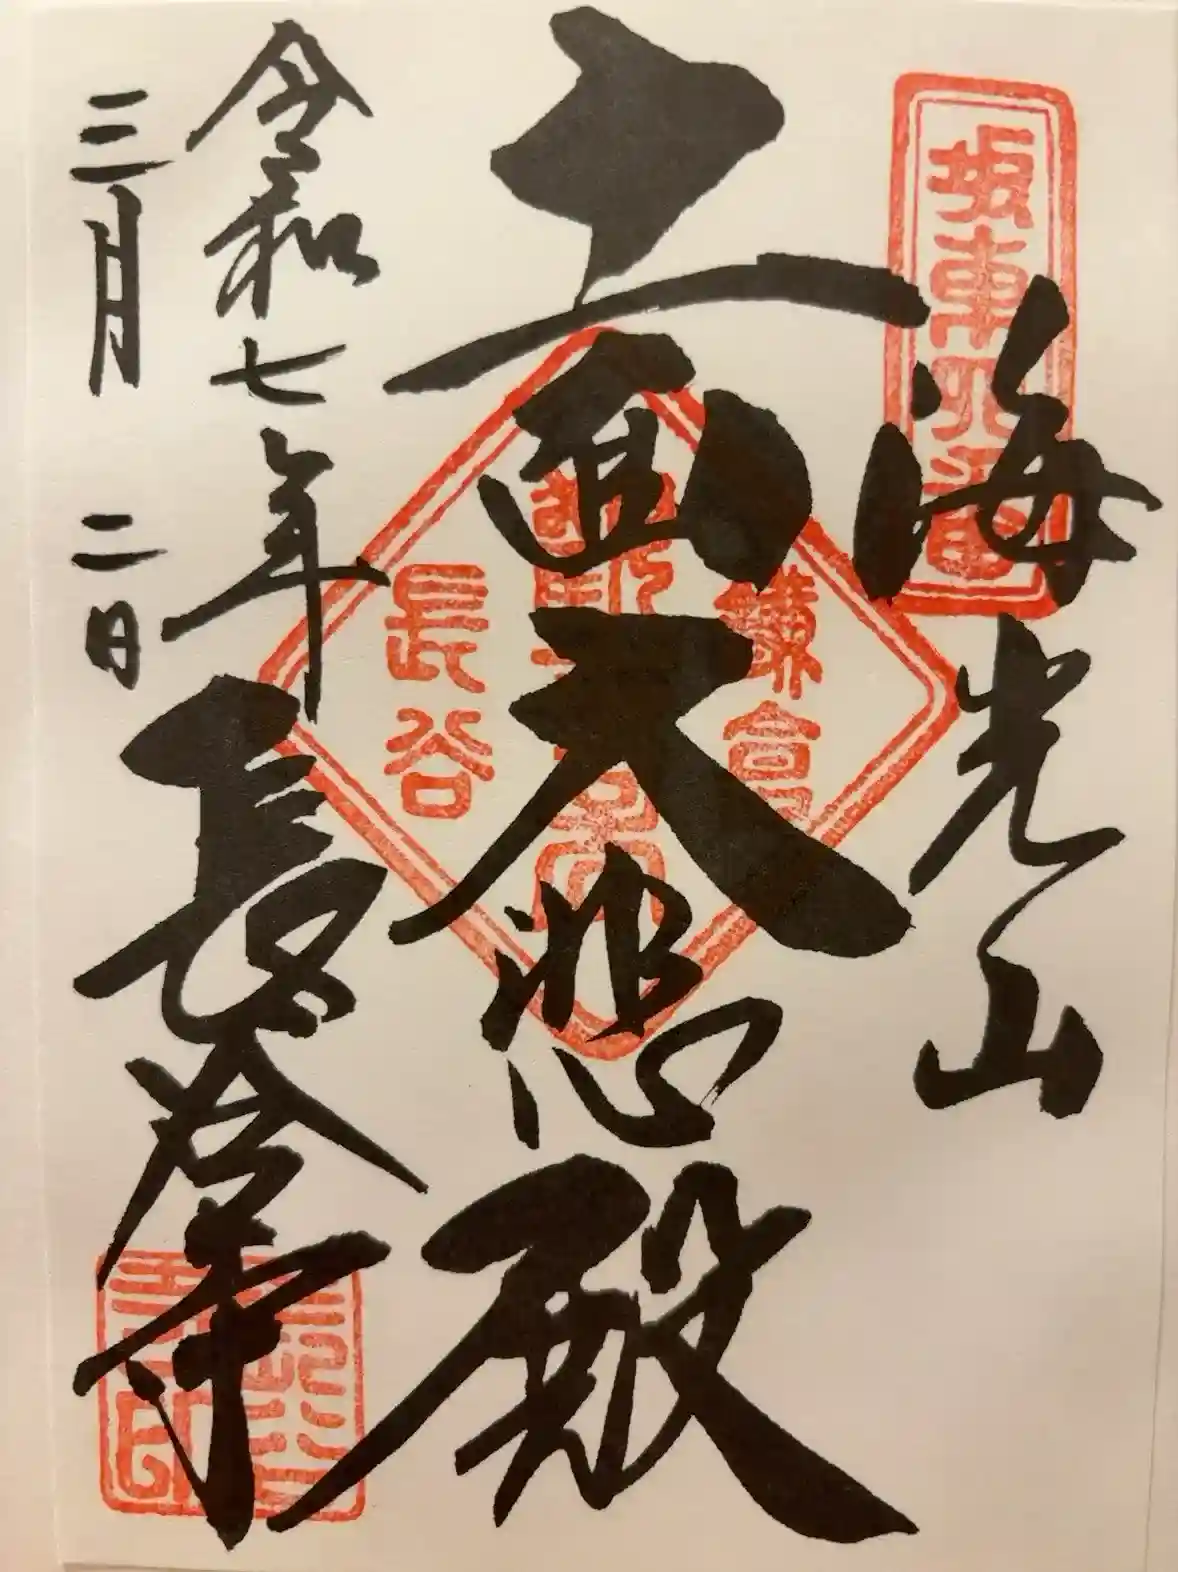 坂東四番
海光山
十一面大悲殿
鎌倉
長谷
令和七年
三月二日
長谷寺